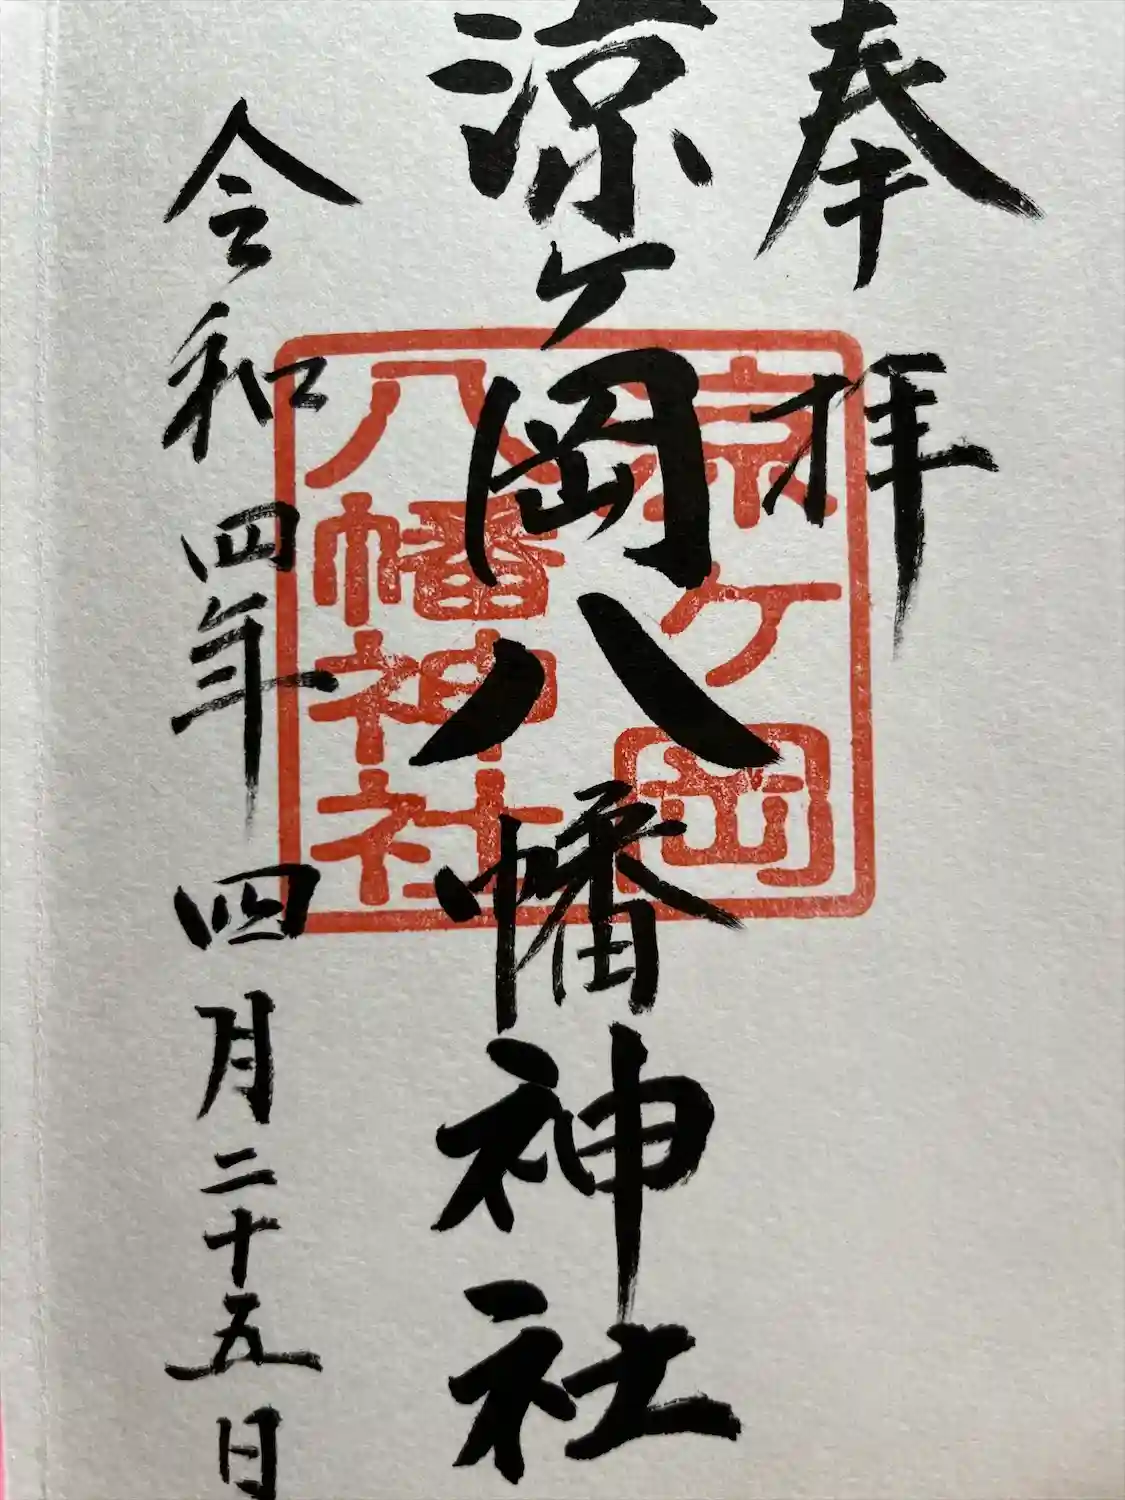 奉拝
涼ケ岡八幡神社
令和四年四月二十五日
涼ケ岡
八幡神社